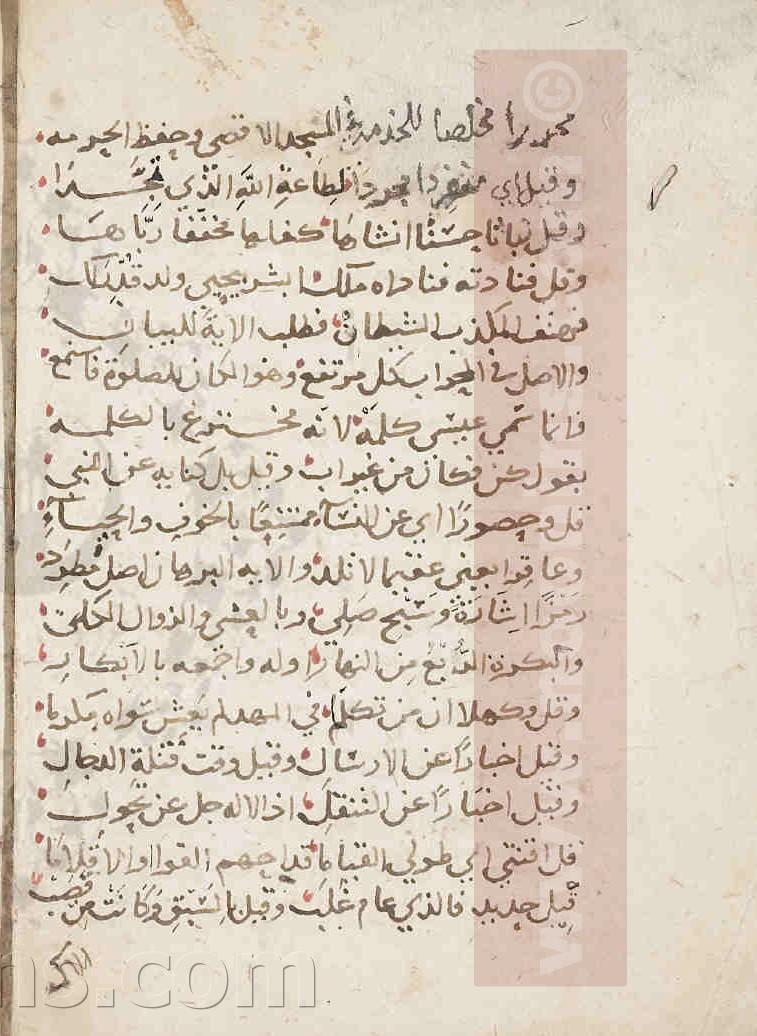 محررا مخلصا للخدمة في المسجد الاقصى وحفظ الحرمه
وقيل اي منفردا مجردا لطاعة الله الذي تجردا
وقل نباتا حسنا انشاها كفلها مختفا رباها
وقل فنادته فناداه ملك بشر بيحيى ولد قد
المكذب الشيطان فطلب الاية للبيان
والاصل في المحراب كل مرتفع وهو المكان للصلوة فاستمع
فانما سمي عيسى كلمة لانه مخترع بالكلمه
بقول كن فكان من غير اب وقيل بل كنايه عن النبي
قل وحصورا اي عن النسآء ممتنعا بالخوف والحيآء
وعاقرا يعني عقيما لا تلد والايه البرهان اصل مطرد
رمزا اشارة وسبح صلي وبالعشي والزوال
والبكرة الربع من النهار اوله واجمعه بالابكار
وقل وكهلا ان من تكلما في المهد لم يعش سواه
وقيل اخبارا عن الارسال وقيل وقت قتلة الدجال
وقيل اخبارا عن التنقل اذ الاله جل عن تحول
قل اقنتي اي طولي القياما قداحهم القوا او الاقلاما
قيل حديد فالذي عام غلب وقيل بالسبق وكانت من قصب
www.
ns.com
©